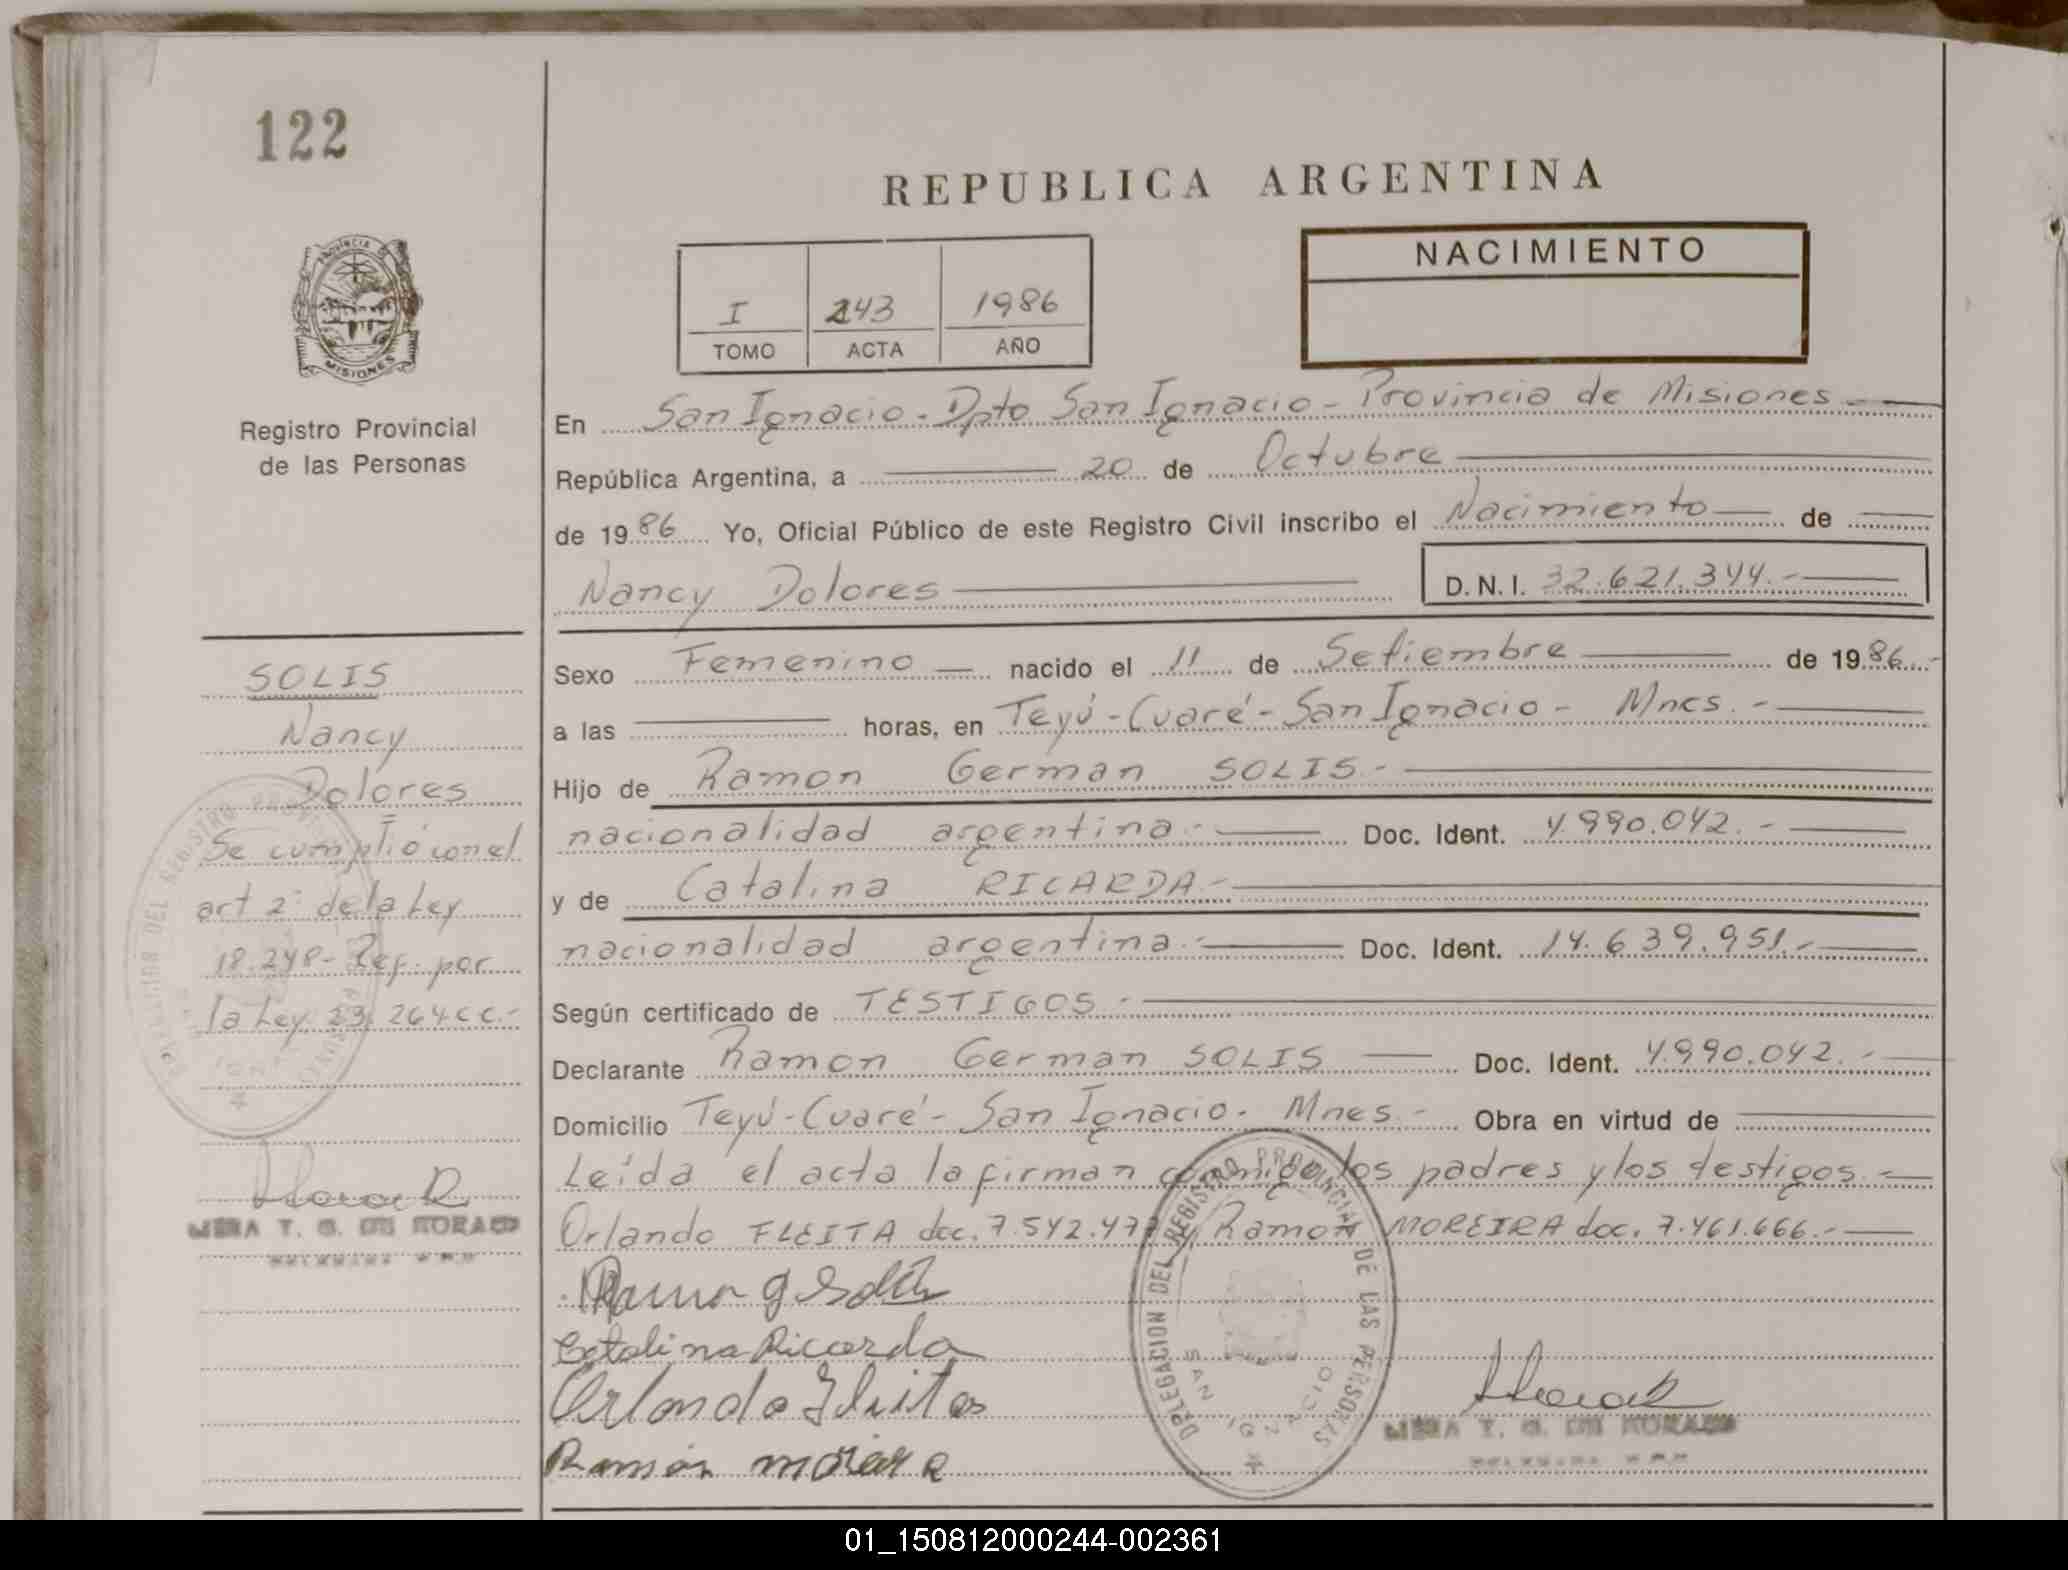 122
REPUBLICA ARGENTINA
NACIMIENTO
I 243 1986
TOMO ACTA AÑO
PROVINCIA DE
MISIONES
Registro Provincial
de las Personas
En San Ignacio - Dpto San Ignacio - Provincia de Misiones -
República Argentina, a 20 de Octubre
de 1986 Yo, Oficial Público de este Registro Civil inscribo el Nacimiento de
Nancy Dolores D.N.I. 32.621.344.-
Sexo Femenino nacido el 11 de Setiembre de 1986.-
a las horas, en Teyú-Cuaré-San Ignacio - Mnes.-
Hijo de Ramon German SOLIS.-
nacionalidad argentina.- Doc. Ident. 4.990.042.-
y de Catalina RICARDA.-
nacionalidad argentina.- Doc. Ident. 14.639.951.-
Según certificado de TESTIGOS.-
Declarante Ramon German SOLIS Doc. Ident. 4.990.042.-
Domicilio Teyú-Cuaré-San Ignacio. Mnes.- Obra en virtud de
Leída el acta la firman conmigo los padres y los testigos.-
Orlando FLEITA doc. 7.542.477 y Ramon MOREIRA doc. 7.461.666.-
Ramon G Solis
Catalina Ricarda
Orlando Fleitas
Ramón moreira
DELEGACION DEL REGISTRO PROVINCIAL DE LAS PERSONAS
SAN IGNACIO
T. G. DE
SOLIS
Nancy
Dolores
Se cumplió con el
art 2º de la Ley
18.248- Ref. por
la Ley 23.264 CC.-
T. G. DE
01_150812000244-002361